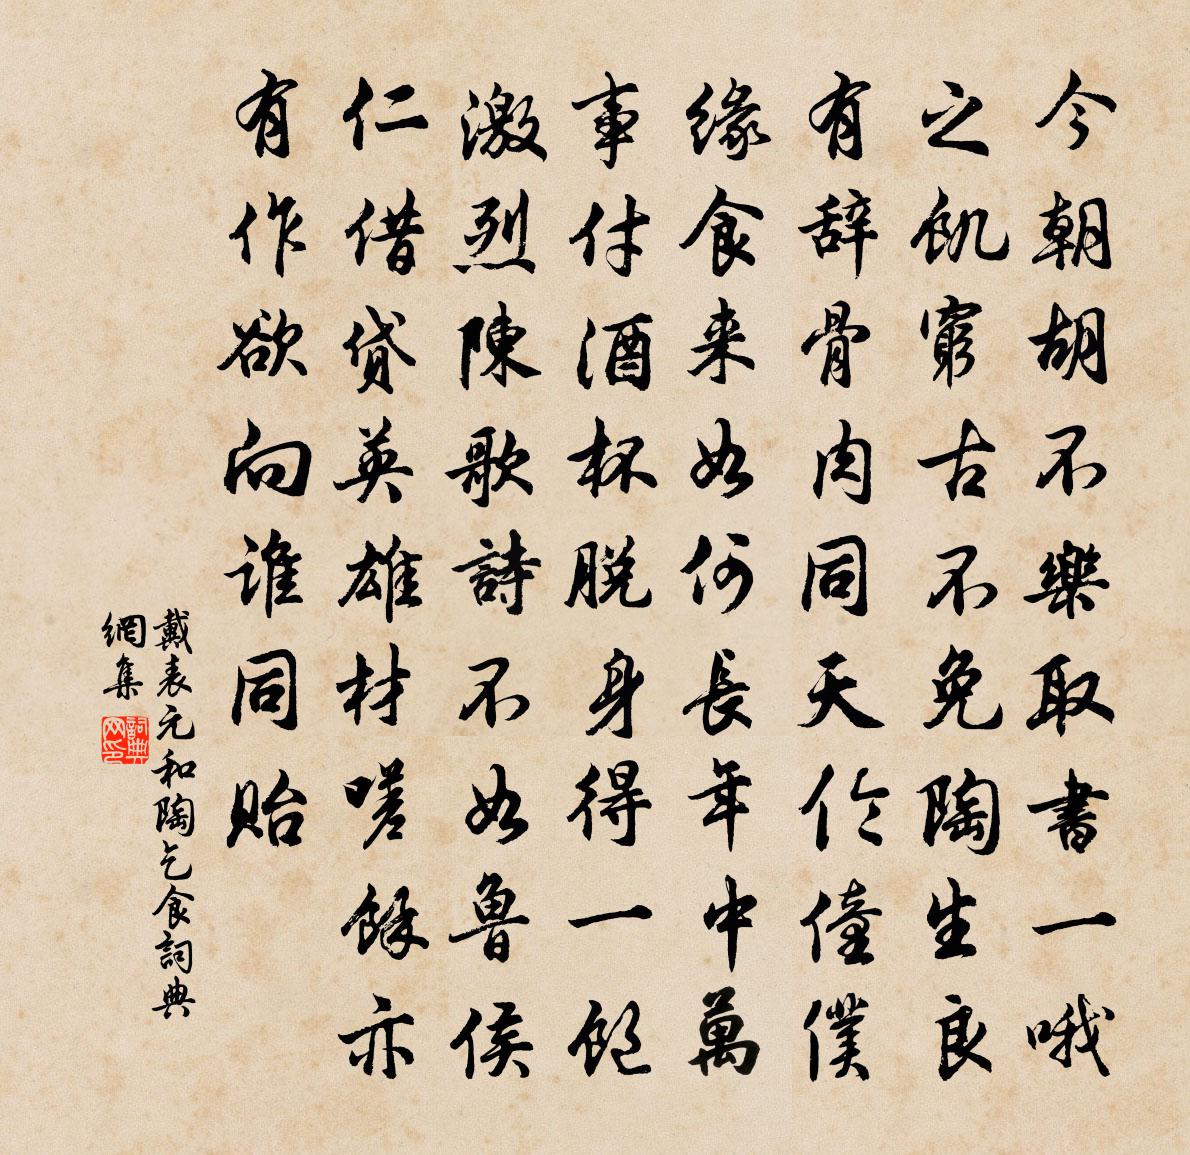 今朝胡不樂取書一哦
之飢窮古不免陶生良
有辞骨肉同天伦僮僕
緣食来如何長年中萬
事付酒杯脱身得一飽
激烈陳歌詩不如魯侯
仁借貸英雄材嗟餘亦
有作欲向谁同貽
戴表元和陶乞食詞典
網集
詞典网印